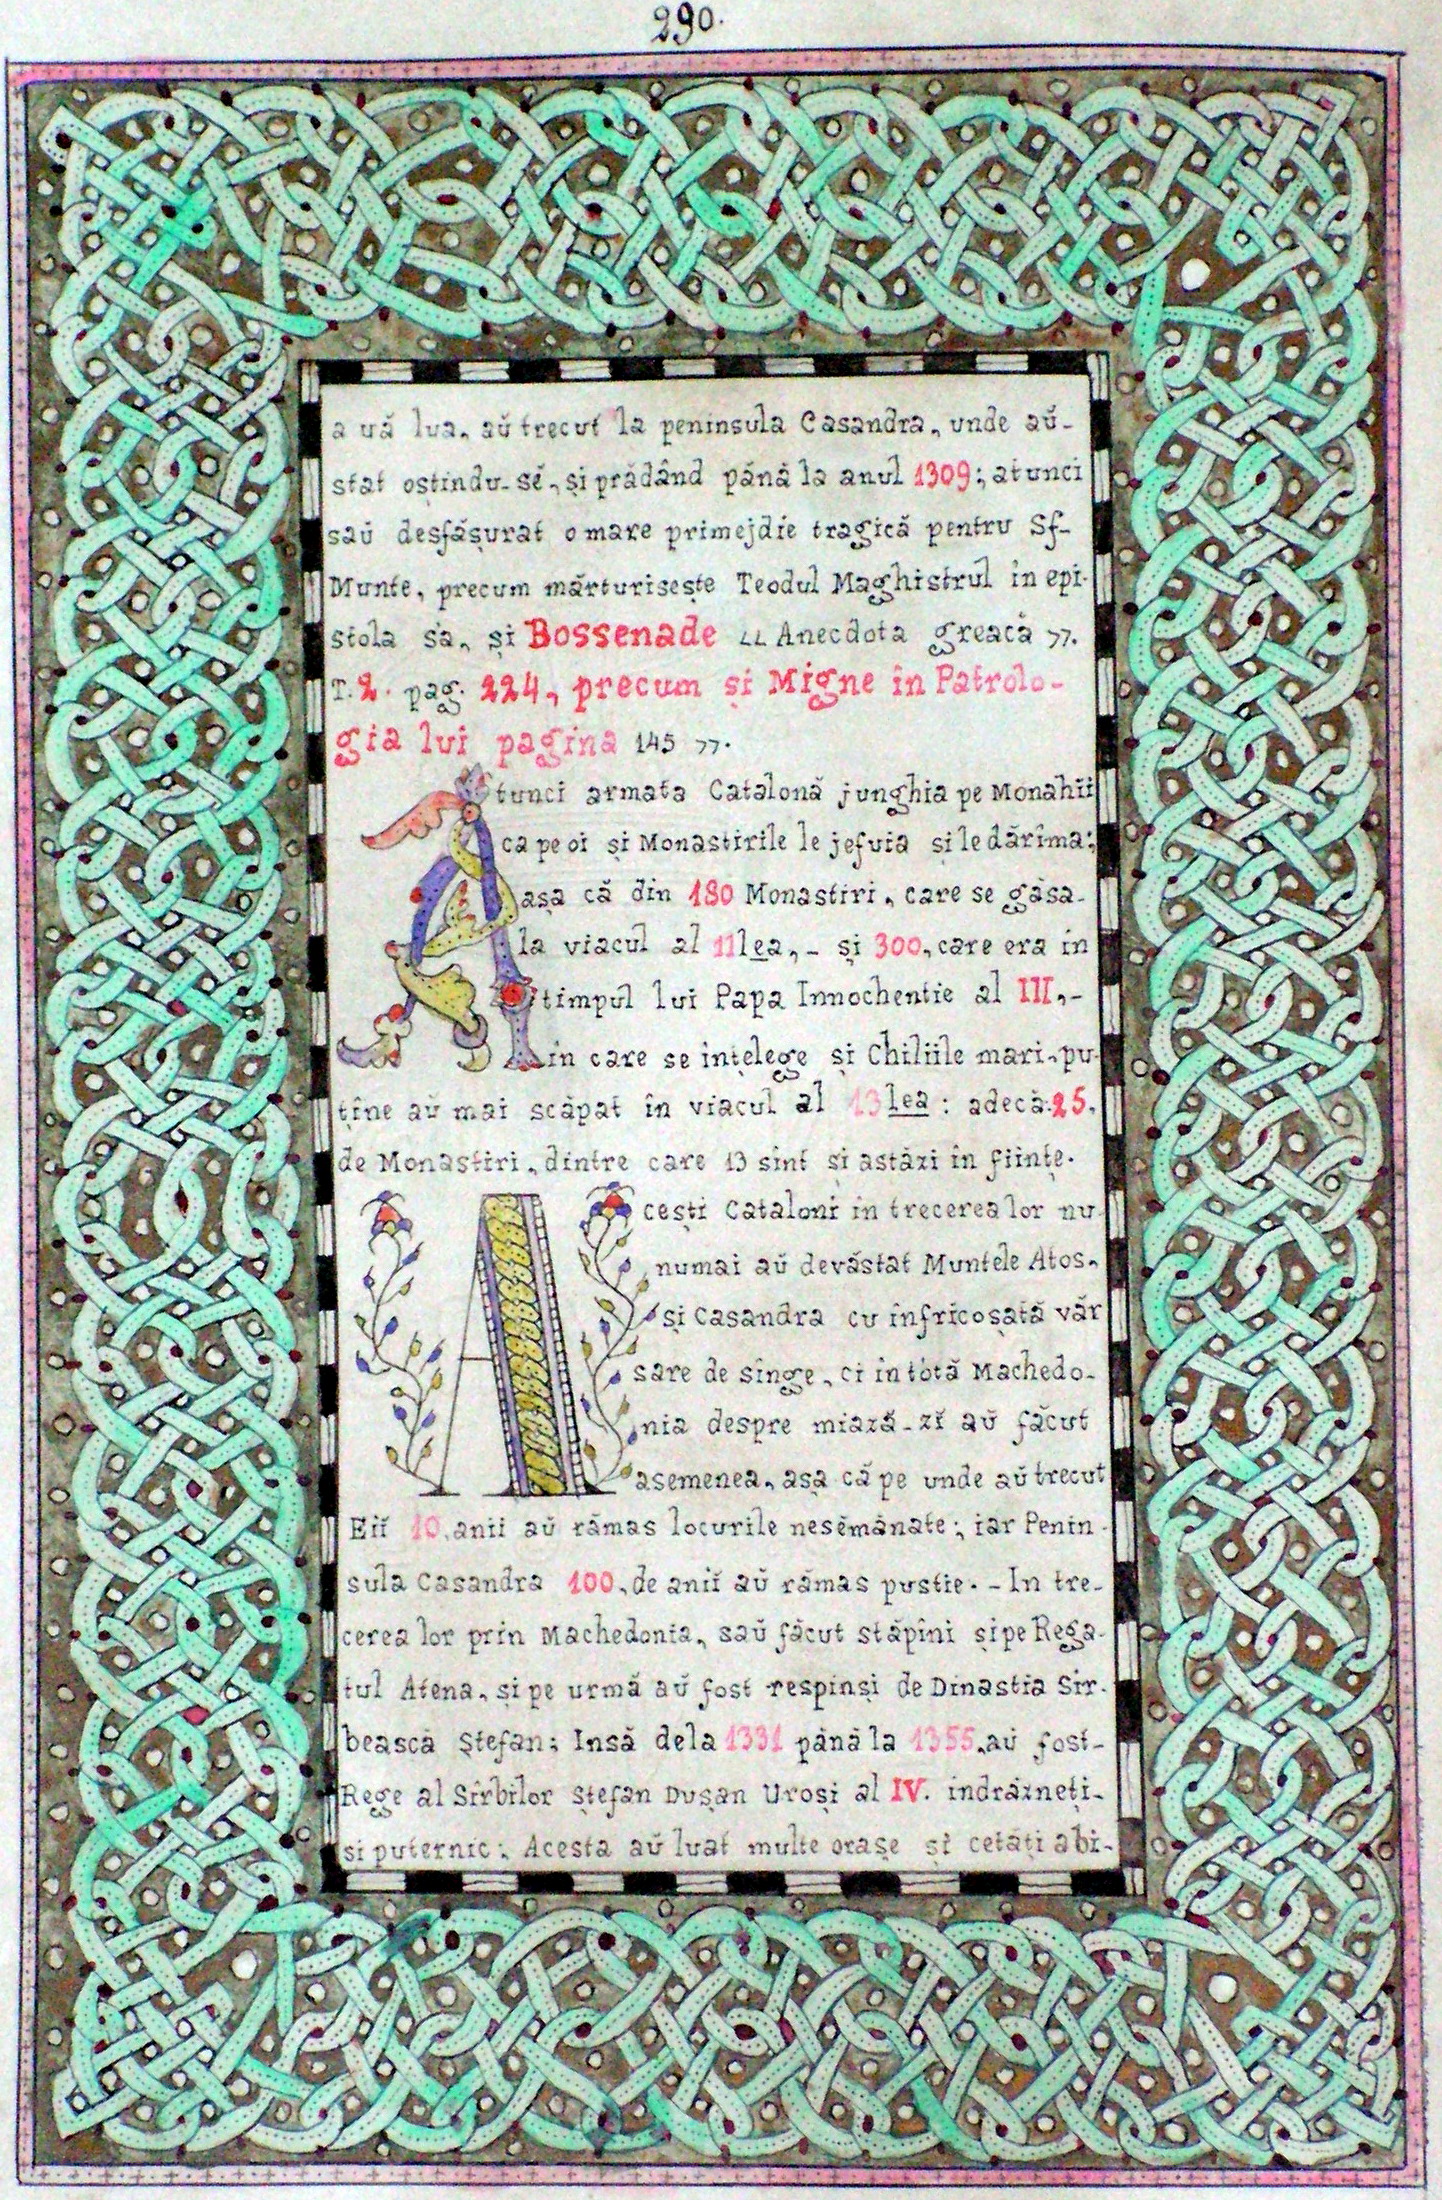 290.
a uă lua, aŭ trecut la peninsula Casandra, unde aŭ-
stat oștindu-sĕ, și prădând pănă la anul 1309; atunci
saŭ desfășurat o mare primejdie tragică pentru Sf-
Munte, precum mărturisește Teodul Maghistrul în epi-
stola sa, și Bossenade „ Anecdota greacă ”.
T. 2. pag. 224, precum și Migne în Patrolo-
gia lui pagina 145 ”.
Atunci armata Catalonă junghia pe Monahii
ca pe oi și Monastirile le jefuia si le dărîma;
așa că din 180 Monastiri, care se găsa-
la viacul al 11lea,- și 300, care era in
timpul lui Papa Innochentie al III,-
in care se ințelege și Chiliile mari, pu-
tîne aŭ mai scăpat în viacul al 13lea: adecă: 25,
de Monastiri, dintre care 13 sint și astăzi in ființe.
Acești Cataloni in trecerea lor nu-
numai aŭ devăstat Muntele Atos,
și Casandra cu înfricoșată văr
sare de sînge, ci in totă Machedo-
nia despre miază-zĭ aŭ făcut
asemenea, așa că pe unde aŭ trecut
Eĭĭ 10, anii aŭ rămas locurile nesĕmănate; iar Penin-
sula Casandra 100, de aniĭ aŭ rămas pustie. - In tre-
cerea lor prin Machedonia, saŭ făcut stăpîni și pe Rega-
tul Atena, si pe urmă aŭ fost respinși de Dinastia Sir-
bească Ștefan; Insă dela 1331 pănă la 1355, aŭ fost-
Rege al Sîrbilor Ștefan Dușan Uroși al IV. indrăzneți-
si puternic; Acesta aŭ luat multe orașe și cetăți abi-